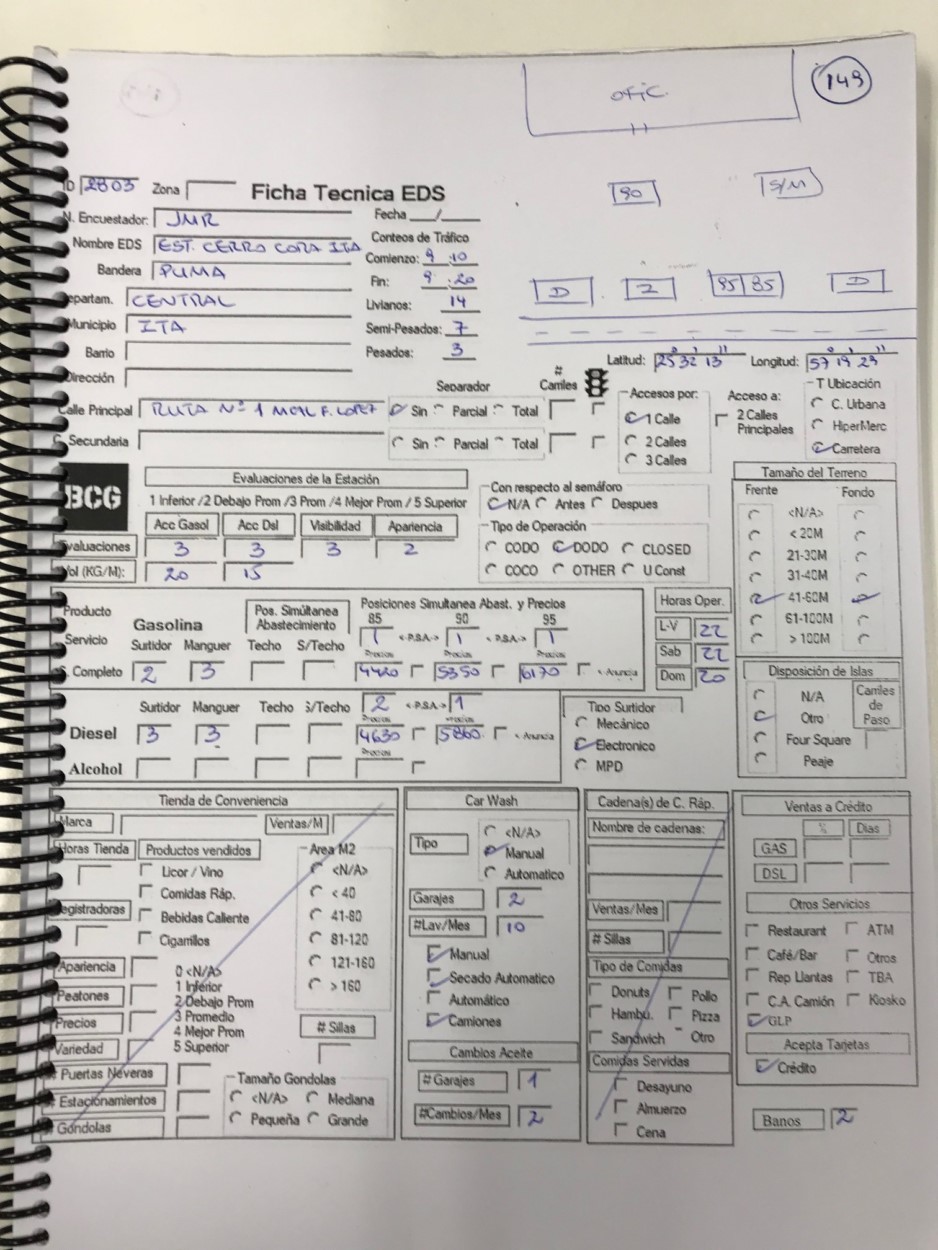 ofic.
149
ID 2803 Zona
Ficha Tecnica EDS
90
S/M
N. Encuestador: JMR
Fecha __/__
Nombre EDS EST. CERRO CORA ITA
Conteos de Tráfico
Comienzo: 9:10
Bandera PUMA
Fin: 9:20
D 2 95 85 D
Departam. CENTRAL
Livianos: 14
Municipio ITA
Semi-Pesados: 7
Barrio
Pesados: 3
Latitud: 25° 32' 13" Longitud: 57° 19' 23"
Dirección
Separador # Carriles
Accesos por: Acceso a: T Ubicación
Calle Principal RUTA Nº 1 MCAL F. LOPEZ Sin Parcial Total
1 Calle 2 Calles Principales C. Urbana
HiperMerc
C. Secundaria Sin Parcial Total
2 Calles Carretera
3 Calles
BCG
Evaluaciones de la Estación
1 Inferior /2 Debajo Prom /3 Prom /4 Mejor Prom / 5 Superior
Acc Gasol Acc Dsl Visibilidad Apariencia
Evaluaciones 3 3 3 2
Vol (KG/M): 20 15
Con respecto al semáforo
N/A Antes Despues
Tipo de Operación
CODO DODO CLOSED
COCO OTHER U Const
Tamaño del Terreno
Frente Fondo
<N/A>
< 20M
21-30M
31-40M
41-60M
61-100M
> 100M
Producto
Servicio
Gasolina
Pos. Simúltanea Abastecimiento
Posiciones Simultanea Abast. y Precios
85 90 95
Surtidor Manguer Techo S/Techo 1 <-P.S.A.-> 1 <-P.S.A.-> 1
Precios Precios Precios
S. Completo 2 3 4420 5350 6170 <-Anuncia
Horas Oper.
L-V 22
Sab 22
Dom 20
Disposición de Islas
N/A
Otro
Four Square
Peaje
Carriles de Paso
Surtidor Manguer Techo S/Techo 2 <-P.S.A.-> 1
Precios Precios
Diesel 3 3 4630 5860 <-Anuncia
Precios
Alcohol
Tipo Surtidor
Mecánico
Electronico
MPD
Tienda de Conveniencia
Marca Ventas/M
Horas Tienda Productos vendidos
Licor / Vino
Comidas Ráp.
Registradoras
Bebidas Caliente
Cigarrillos
Area M2
<N/A>
< 40
41-80
81-120
121-160
> 160
Apariencia
Peatones
Precios
Variedad
0 <N/A>
1 Inferior
2 Debajo Prom
3 Promedio
4 Mejor Prom
5 Superior
# Sillas
# Puertas Neveras
# Estacionamientos
# Gondolas
Tamaño Gondolas
<N/A> Mediana
Pequeña Grande
Car Wash
Tipo
<N/A>
Manual
Automatico
Garajes 2
#Lav/Mes 10
Manual
Secado Automatico
Automático
Camiones
Cambios Aceite
# Garajes 1
#Cambios/Mes 2
Cadena(s) de C. Ráp.
Nombre de cadenas:
Ventas/Mes
# Sillas
Tipo de Comidas
Donuts Pollo
Hambu. Pizza
Sandwich Otro
Comidas Servidas
Desayuno
Almuerzo
Cena
Ventas a Crédito
% Dias
GAS
DSL
Otros Servicios
Restaurant ATM
Café/Bar Otros
Rep Llantas TBA
C.A. Camión Kiosko
GLP
Acepta Tarjetas
Crédito
Banos 2